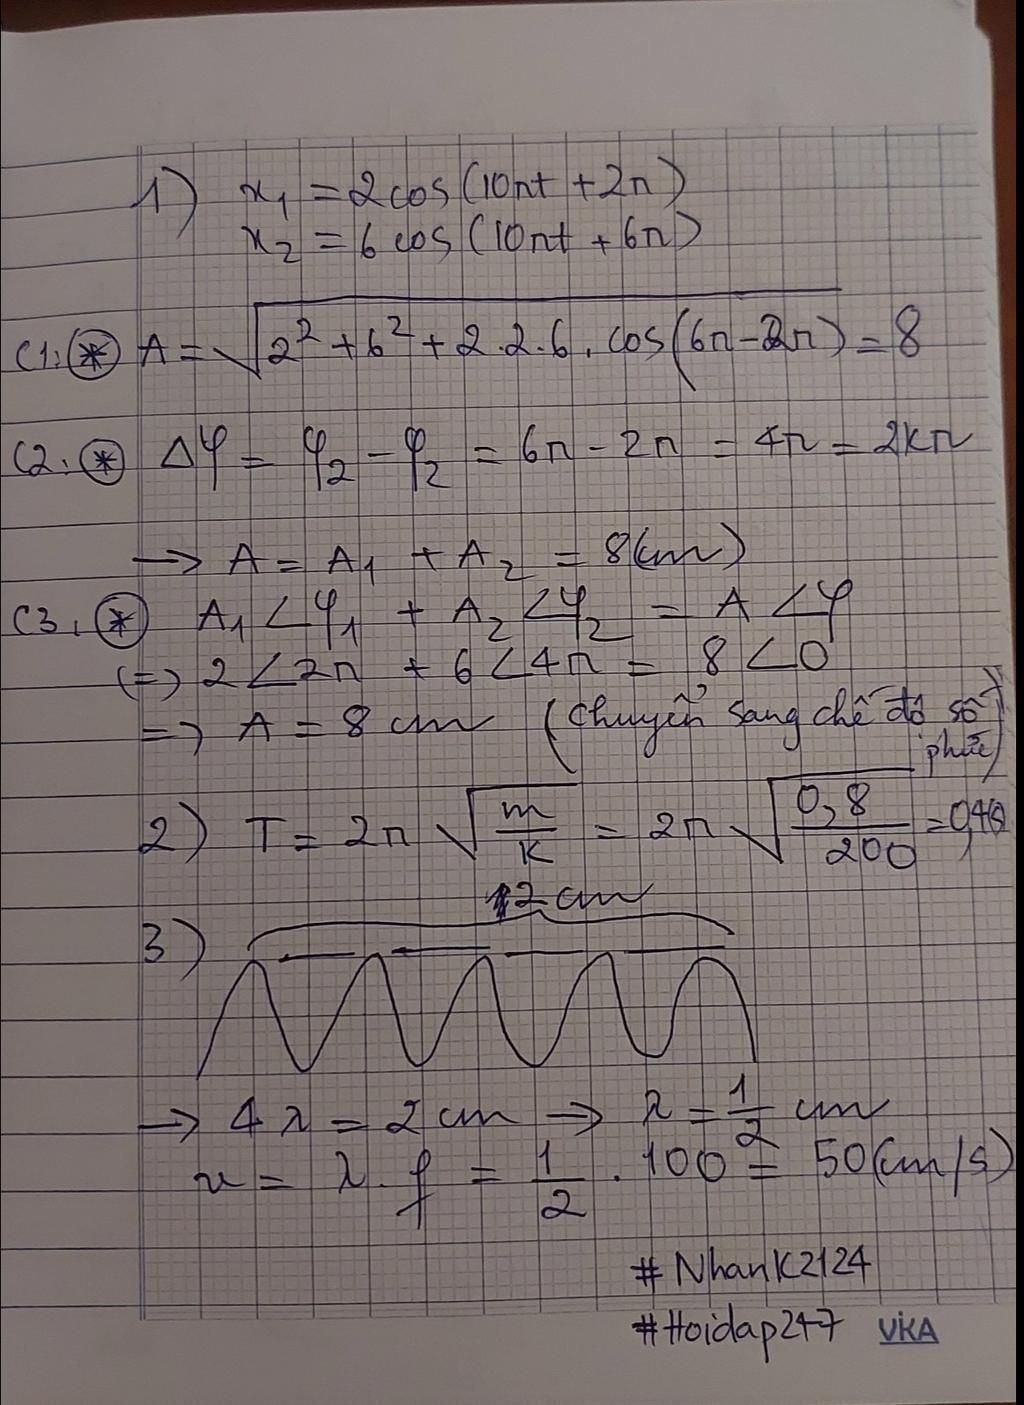 1) x₁ = 2cos(10πt + 2π)
x₂ = 6cos(10πt + 6π)
C1. * A = √(2² + 6² + 2.2.6.cos(6π - 2π)) = 8
C2. * Δφ = φ₂ - φ₂ = 6π - 2π = 4π = 2kπ
→ A = A₁ + A₂ = 8(cm)
C3. * A₁∠φ₁ + A₂∠φ₂ = A∠φ
(=) 2∠2π + 6∠4π = 8∠0
=> A = 8 cm (chuyển sang chế độ số
phức)
2) T = 2π√(m/k) = 2π√(0,8/200) = 0,4
2 cm
3)
→ 4λ = 2cm → λ = 1/2 cm
v = λ.f = 1/2 . 100 = 50(cm/s)
# NhanK2124
#Hoidap247 VKA